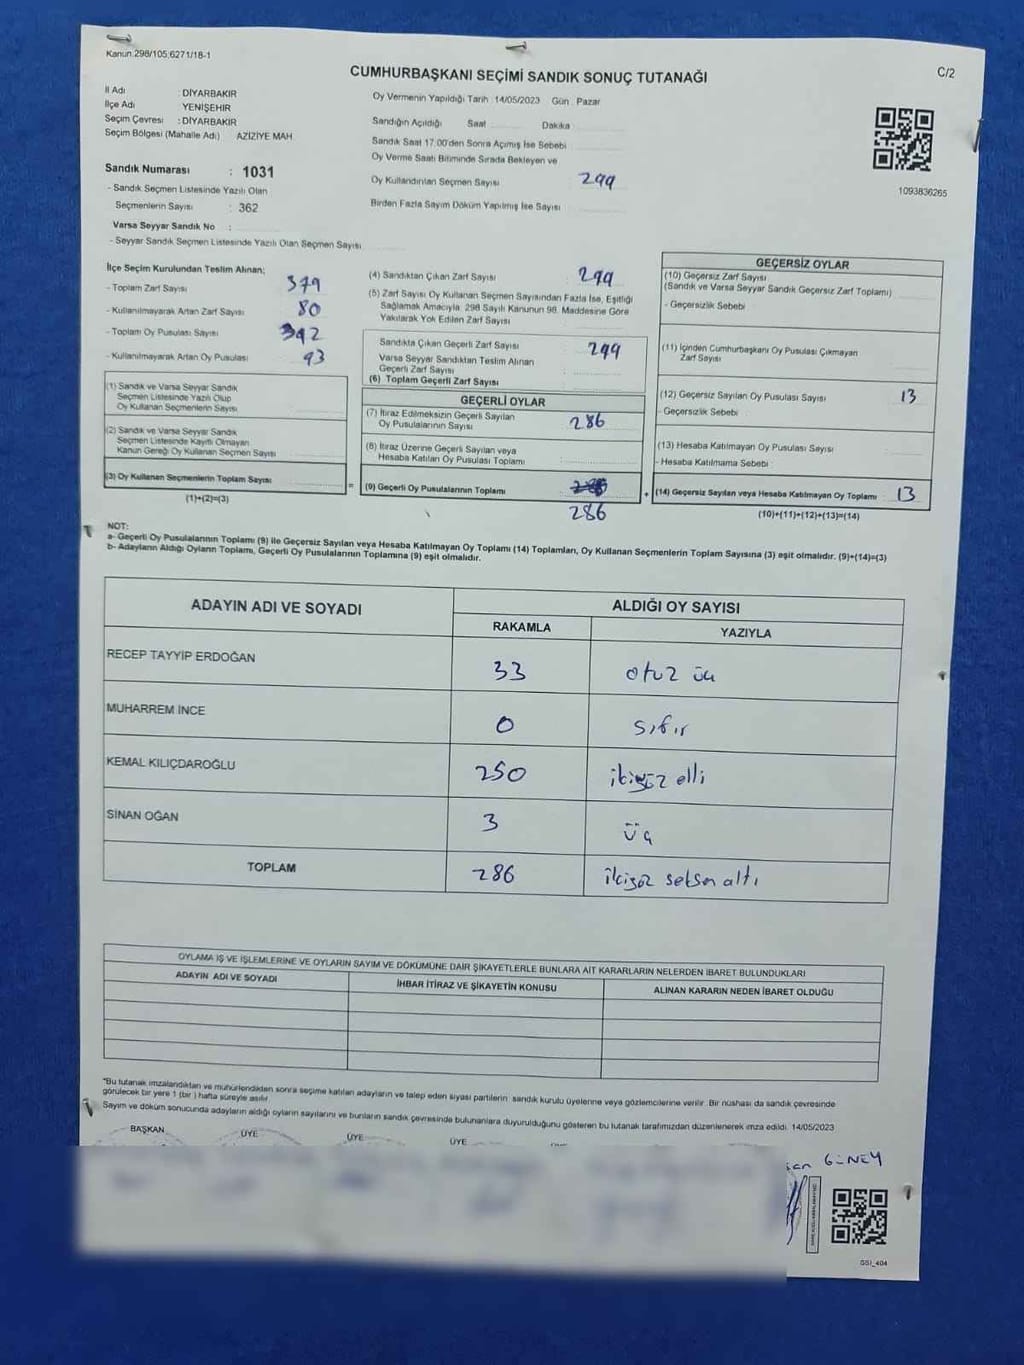 Kanun.298/105;6271/18-1
C/2
CUMHURBAŞKANI SEÇİMİ SANDIK SONUÇ TUTANAĞI
İl Adı : DİYARBAKIR
İlçe Adı YENİŞEHİR
Seçim Çevresi : DİYARBAKIR
Seçim Bölgesi (Mahalle Adı) AZİZİYE MAH
Sandık Numarası : 1031
- Sandık Seçmen Listesinde Yazılı Olan
Seçmenlerin Sayısı : 362
Varsa Seyyar Sandık No :
- Seyyar Sandık Seçmen Listesinde Yazılı Olan Seçmen Sayısı
Oy Vermenin Yapıldığı Tarih 14/05/2023 Gün Pazar
Sandığın Açıldığı Saat Dakika
Sandık Saat 17.00'den Sonra Açımış İse Sebebi
Oy Verme Saati Bitiminde Sırada Bekleyen ve
Oy Kullandırılan Seçmen Sayısı 299
Birden Fazla Sayım Döküm Yapılmış İse Sayısı
1093836265
İlçe Seçim Kurulundan Teslim Alınan;
- Toplam Zarf Sayısı 379
- Kullanılmayarak Artan Zarf Sayısı 80
- Toplam Oy Pusulası Sayısı 392
- Kullanılmayarak Artan Oy Pusulası 93
(1) Sandık ve Varsa Seyyar Sandık
Seçmen Listesinde Yazılı Olup
Oy Kullanan Seçmenlerin Sayısı
(2) Sandık ve Varsa Seyyar Sandık
Seçmen Listesinde Kayıtlı Olmayan
Kanun Gereği Oy Kullanan Seçmen Sayısı
(3) Oy Kullanan Seçmenlerin Toplam Sayısı
(1)+(2)=(3)
(4) Sandıktan Çıkan Zarf Sayısı 299
(5) Zarf Sayısı Oy Kullanan Seçmen Sayısından Fazla İse, Eşitliği
Sağlamak Amacıyla 298 Sayılı Kanunun 98. Maddesine Göre
Yakılarak Yok Edilen Zarf Sayısı
Sandıkta Çıkan Geçerli Zarf Sayısı 299
Varsa Seyyar Sandıktan Teslim Alınan
Geçerli Zarf Sayısı
(6) Toplam Geçerli Zarf Sayısı
GEÇERLİ OYLAR
(7) İtiraz Edilmeksizin Geçerli Sayılan
Oy Pusulalarının Sayısı 286
(8) İtiraz Üzerine Geçerli Sayılan veya
Hesaba Katılan Oy Pusulası Toplamı
= (9) Geçerli Oy Pusulalarının Toplamı
286
GEÇERSİZ OYLAR
(10) Geçersiz Zarf Sayısı
(Sandık ve Varsa Seyyar Sandık Geçersiz Zarf Toplamı)
- Geçersizlik Sebebi
(11) İçinden Cumhurbaşkanı Oy Pusulası Çıkmayan
Zarf Sayısı
(12) Geçersiz Sayılan Oy Pusulası Sayısı 13
- Geçersizlik Sebebi
(13) Hesaba Katılmayan Oy Pusulası Sayısı
- Hesaba Katılmama Sebebi
+ (14) Geçersiz Sayılan veya Hesaba Katılmayan Oy Toplamı 13
(10)+(11)+(12)+(13)=(14)
NOT:
a- Geçerli Oy Pusulalarının Toplamı (9) ile Geçersiz Sayılan veya Hesaba Katılmayan Oy Toplamı (14) Toplamları, Oy Kullanan Seçmenlerin Toplam Sayısına (3) eşit olmalıdır. (9)+(14)=(3)
b- Adayların Aldığı Oyların Toplamı, Geçerli Oy Pusulalarının Toplamına (9) eşit olmalıdır.
ADAYIN ADI VE SOYADI ALDIĞI OY SAYISI
RAKAMLA YAZIYLA
RECEP TAYYİP ERDOĞAN 33 otuz üç
MUHARREM İNCE 0 sıfır
KEMAL KILIÇDAROĞLU 250 ikiyüz elli
SİNAN OĞAN 3 üç
TOPLAM 286 ikiyüz seksen altı
OYLAMA İŞ VE İŞLEMLERİNE VE OYLARIN SAYIM VE DÖKÜMÜNE DAİR ŞİKAYETLERLE BUNLARA AİT KARARLARIN NELERDEN İBARET BULUNDUKLARI
ADAYIN ADI VE SOYADI İHBAR İTİRAZ VE ŞİKAYETİN KONUSU ALINAN KARARIN NEDEN İBARET OLDUĞU
"Bu tutanak imzalandıktan ve mühürlendikten sonra seçime katılan adayların ve talep eden siyasi partilerin sandık kurulu üyelerine veya gözlemcilerine verilir. Bir nüshası da sandık çevresinde
görülecek bir yere 1 (bir) hafta süreyle asılır
Sayım ve döküm sonucunda adayların aldığı oyların sayılarını ve bunların sandık çevresinde bulunanlara duyurulduğunu gösteren bu tutanak tarafımızdan düzenlenerek imza edildi. 14/05/2023
BAŞKAN ÜYE ÜYE ÜYE
GÜNEY
GSI_404